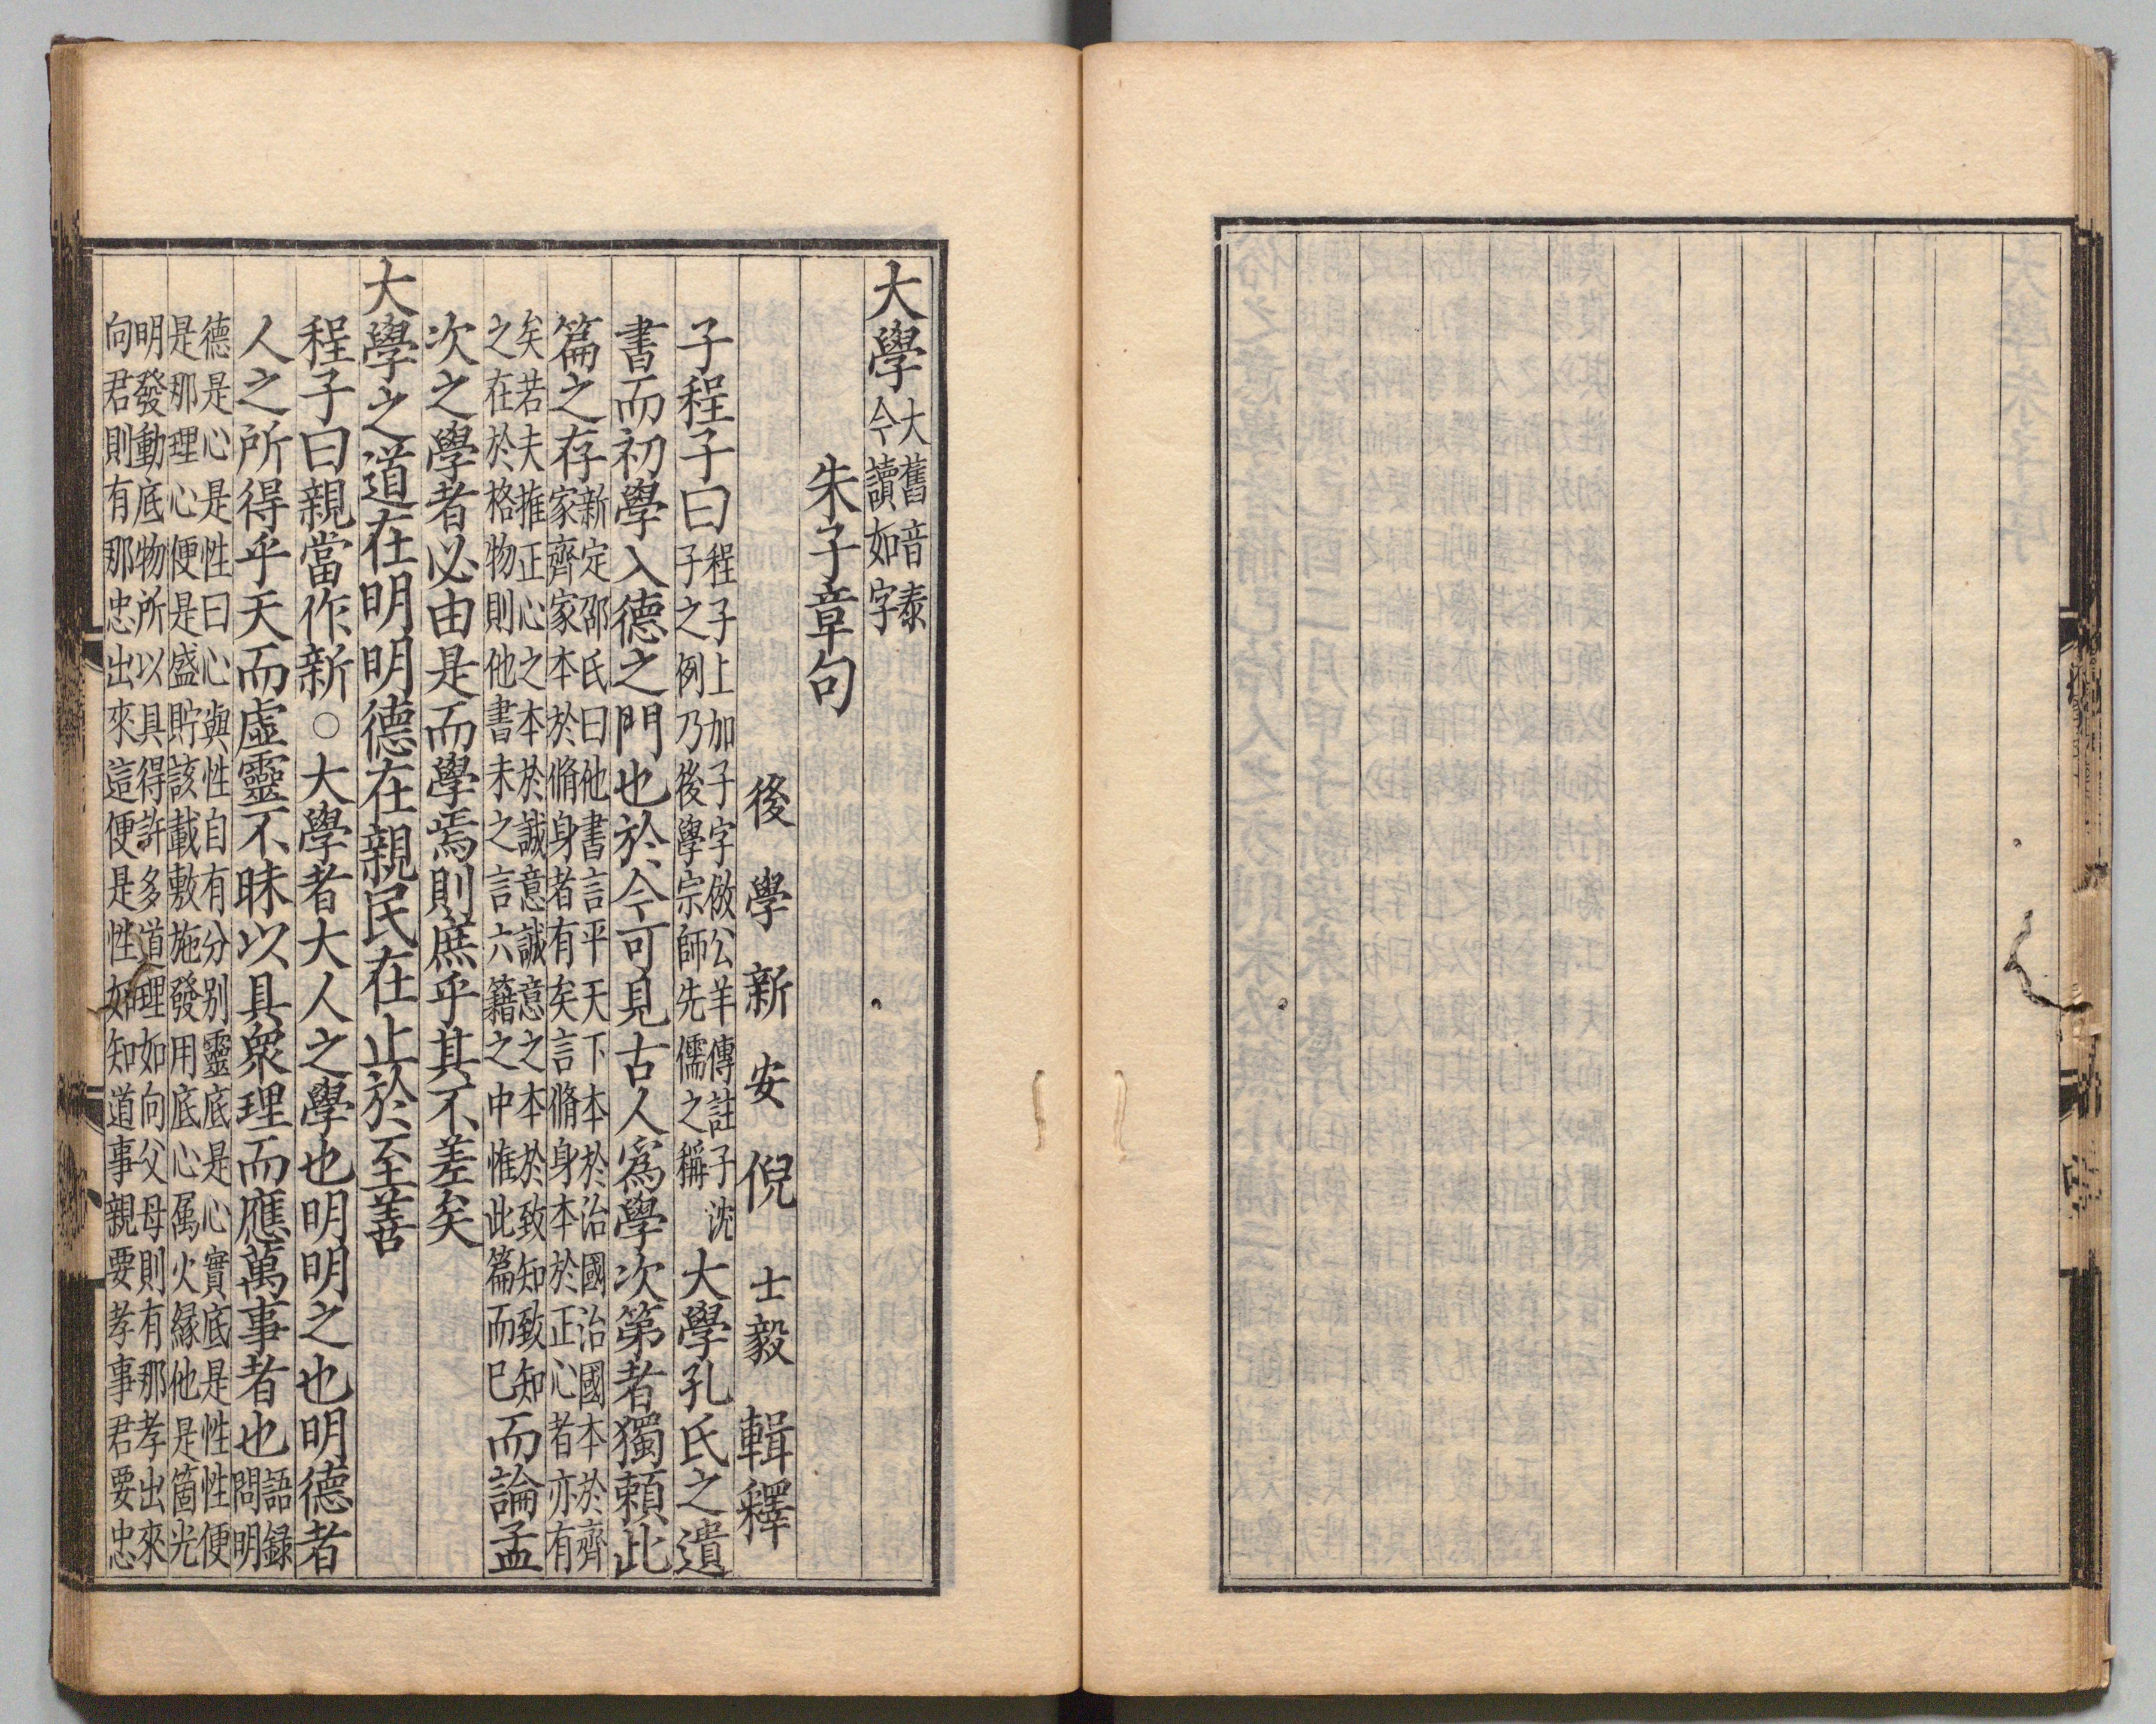 大學大舊音泰今讀如字
朱子章句
後學新安倪士毅輯釋
子程子曰程子上加子字倣公羊傳註子沈子之例乃後學宗師先儒之稱大學孔氏之遺
書而初學入德之門也於今可見古人爲學次第者獨賴此
篇之存新定邵氏曰他書言平天下本於治國治國本於齊家齊家本於脩身者有矣言脩身本於正心者亦有
矣若夫推正心之本於誠意誠意之本於致知致知之在於格物則他書未之言六籍之中惟此篇而已而論孟
次之學者必由是而學焉則庶乎其不差矣
大學之道在明明德在親民在止於至善
程子曰親當作新○大學者大人之學也明明之也明德者
人之所得乎天而虛靈不昧以具衆理而應萬事者也語録問明
德是心是性曰心與性自有分别靈底是心實底是性性便是那理心便是盛貯該載敷施發用底心属火縁他是箇光
明發動底物所以具得許多道理如向父母則有那孝出來向君則有那忠出來這便是性如知道事親要孝事君要忠